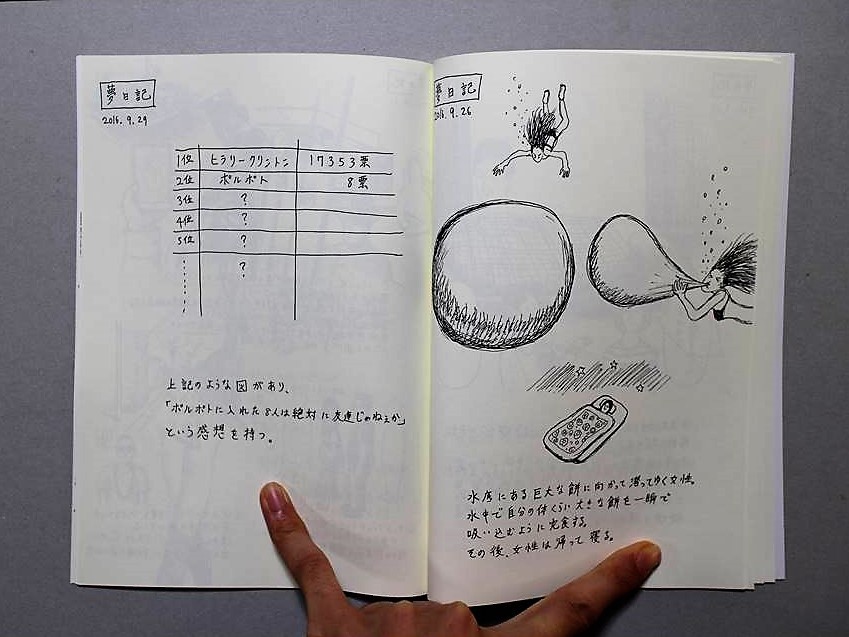 夢日記
2016.9.29
1位 ヒラリークリントン 17353票
2位 ポルポト 8票
3位 ?
4位 ?
5位 ?
?
上記のような図があり、
「ポルポトに入れた8人は絶対に友達じゃねえか」
という感想を持つ。
夢日記
2016.9.26
水底にある巨大な餅に向かって潜ってゆく女性。
水中で自分の体くらい大きな餅を一瞬で
吸い込むように完食する。
その後、女性は帰って寝る。